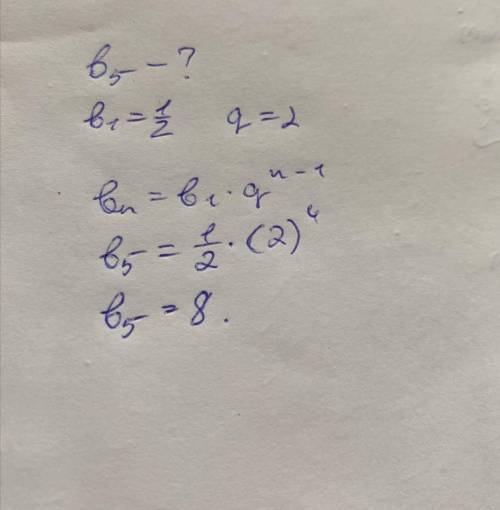 b₅ - ?
b₁ = 1/2 q = 2
bₙ = b₁ · qⁿ⁻¹
b₅ = 1/2 · (2)⁴
b₅ = 8.